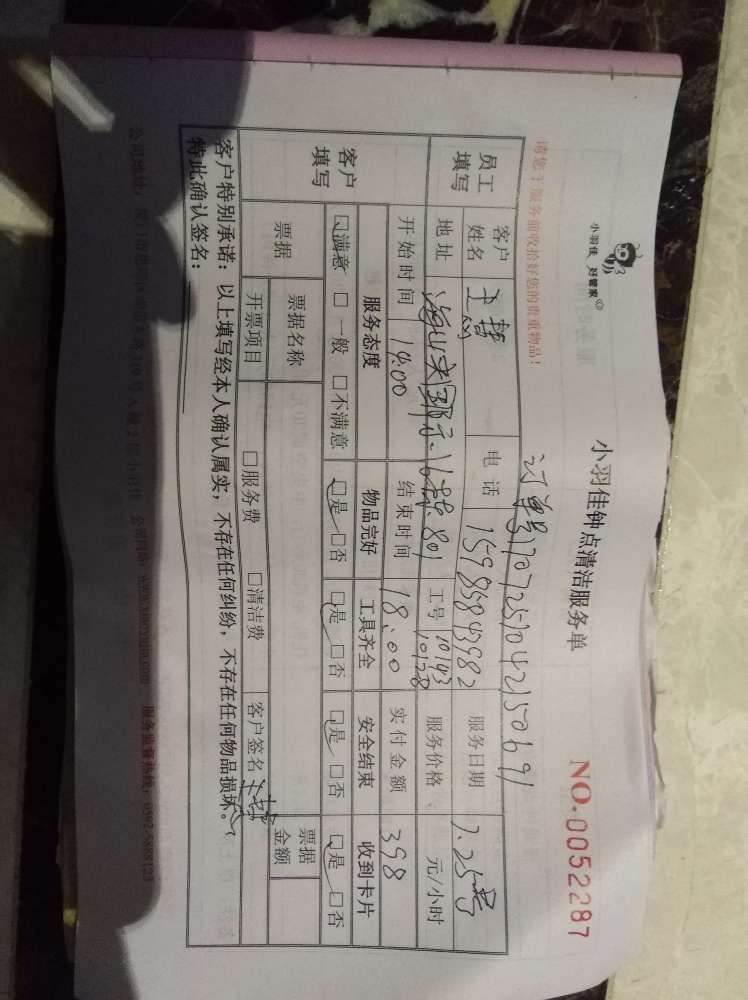 小羽佳 好管家
小羽佳钟点清洁服务单
NO.0052287
请您于服务前收拾好您的贵重物品!
订单号
员工填写
客户姓名
电话 15985843982
服务日期 7.25号
地址
801
工号 10143
10128
服务价格 元/小时
开始时间 14:00
结束时间 18:00
实付金额 398
客户填写
服务态度 物品完好 工具齐全 安全结束 收到卡片
□满意 □一般 □不满意 □是 □否 □是 □否 □是 □否 □是 □否
票据
票据名称
票据金额
开票项目 □服务费 □清洁费
客户签名
客户特别承诺：以上填写经本人确认属实，不存在任何纠纷，不存在任何物品损坏。
特此确认签名：
公司地址：
公司网站：www.xiaoyujia.com 服务监督热线：0592-5888123